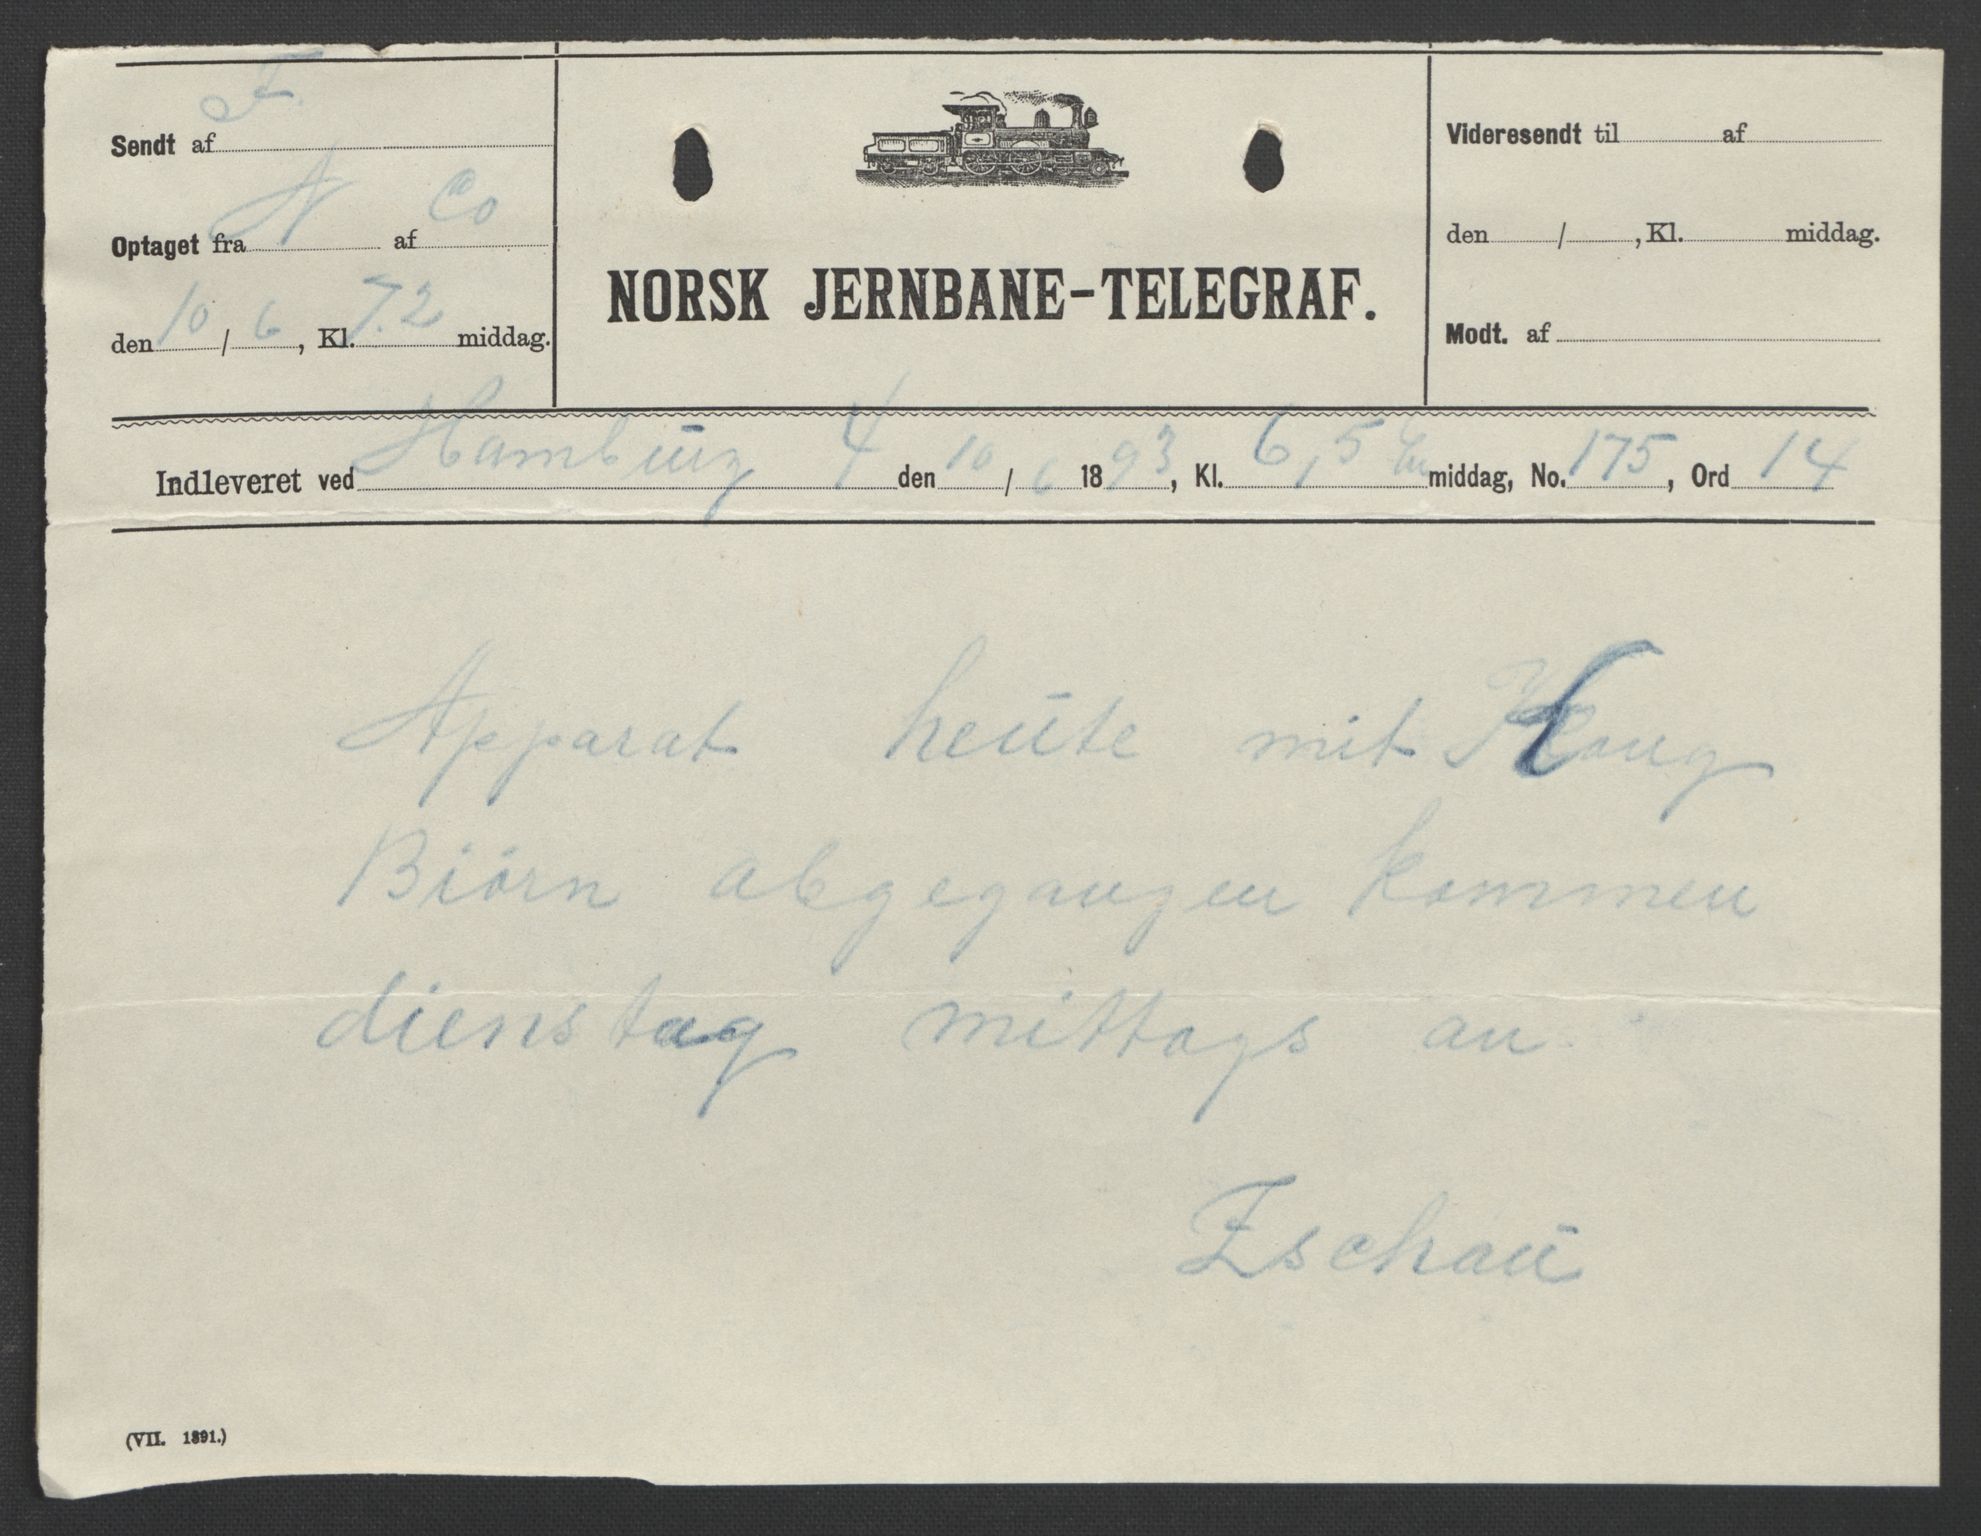 F.
Sendt af
N Co
Optaget fra af
10 6 7.2
den / , Kl. middag.
NORSK JERNBANE-TELEGRAF.
Videresendt til af
den / , Kl. middag.
Modt. af
Indleveret ved Hamburg 4 den 10 / 6 1893, Kl. 6,5 Em middag, No. 175, Ord 14
Apparat heute mit Kong
Biörn abgegangen kommen
dienstag mittags an
Zschau
(VII. 1891.)